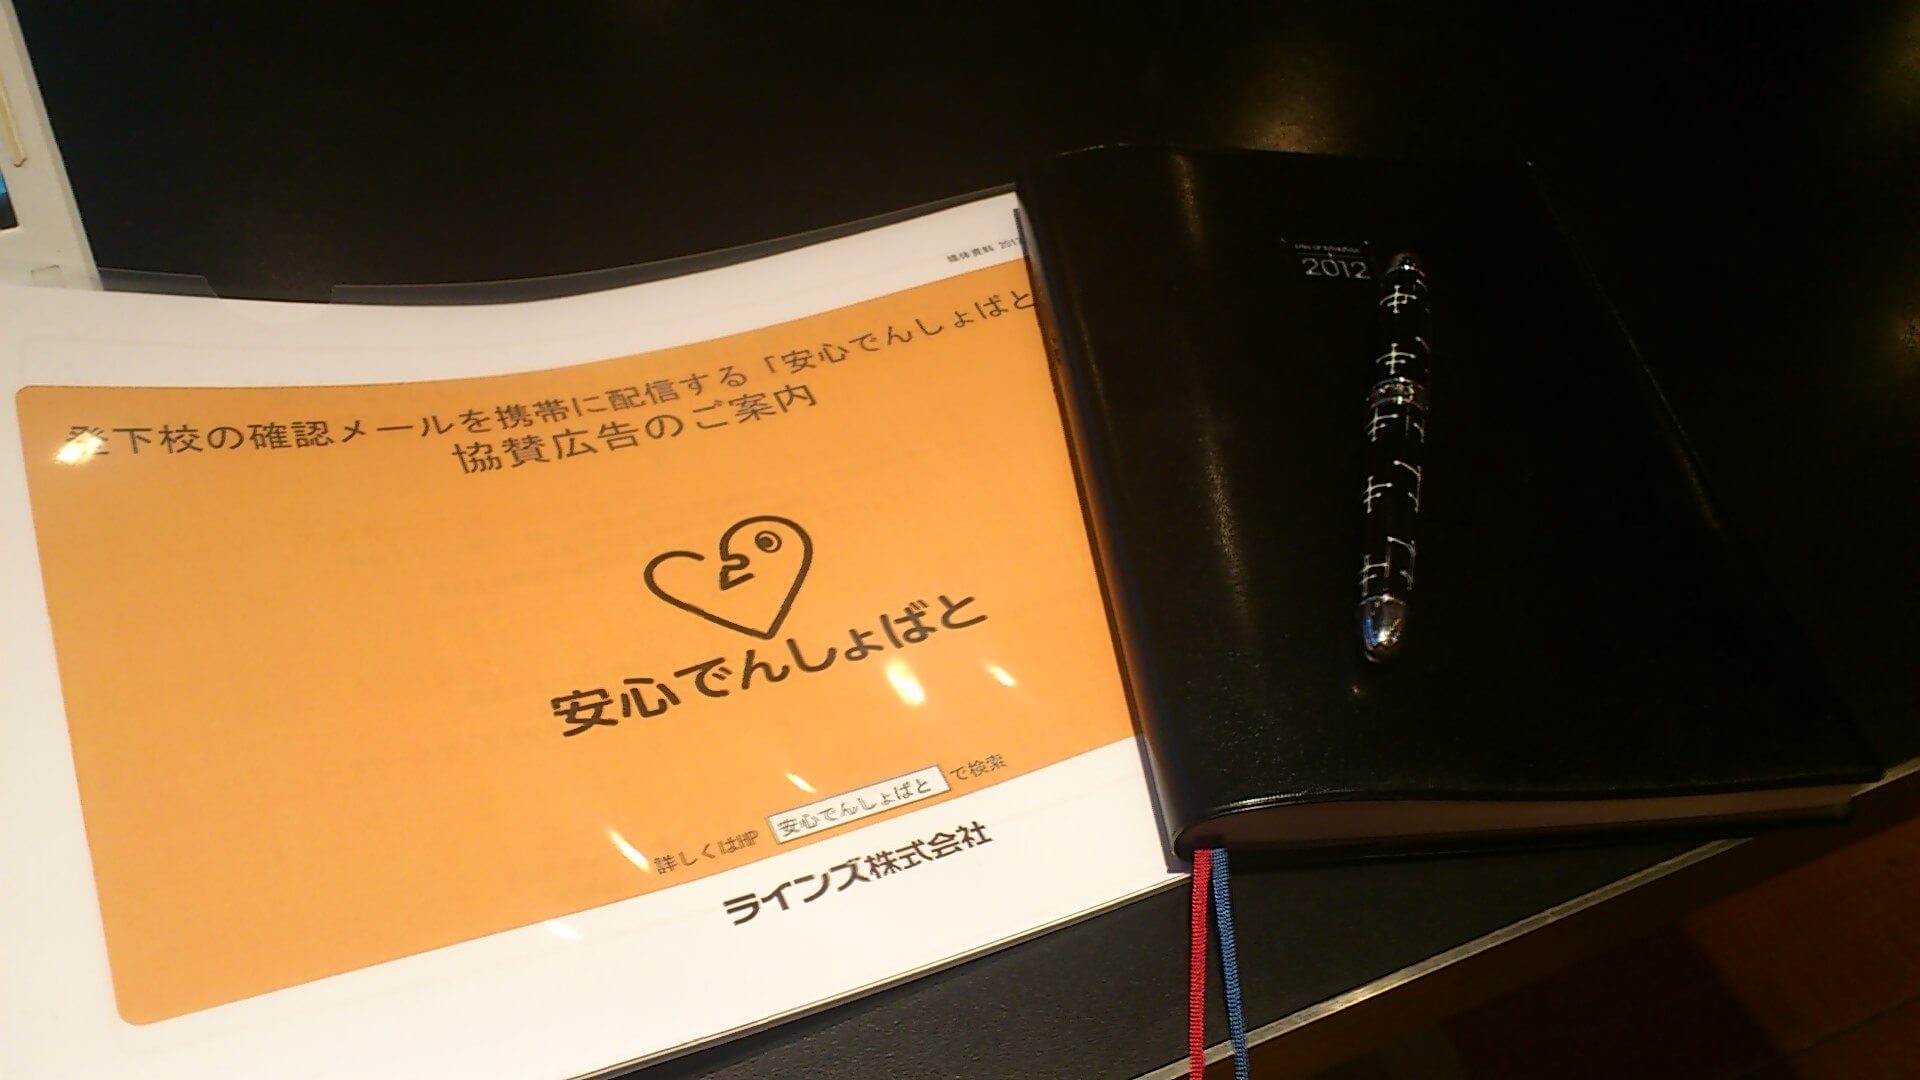 媒体資料 2012
登下校の確認メールを携帯に配信する「安心でんしょばと
協賛広告のご案内
安心でんしょばと
詳しくはHP 安心でんしょばと で検索
ラインズ株式会社
2012